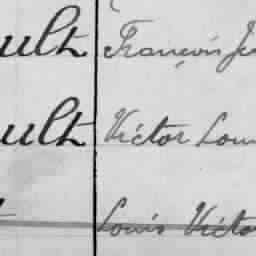 ult François Ju
ult Victor Lou
t Louis Victo